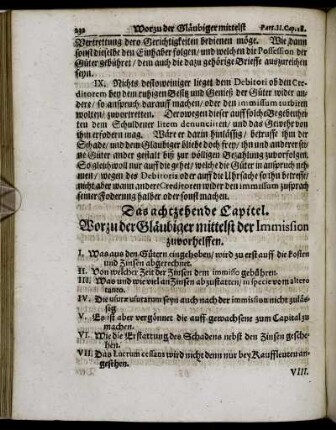 232 Worzu der Gläubiger mittelst Part. II. Cap. 18.
Vertrettung dero Gerichtigkeiten bedienen möge. Wie dann
sonst dieselbe den Einhaber folgen / und welchem die Possession der
Güter gebühret / dem auch die dazu gehörige Brieffe auszureichen
seyn.
IX. Nichts destoweniger lieget dem Debitori ob den Cre-
ditorem bey dem ruhigen Besitz und Genieß der Güter wider an-
dere / so anspruch darauff machen / oder den immissum turbiren
wolten / zuvortretten. Derowegen dieser auff solche Begebenhei-
ten dem Schuldener litem denunciiren / und das Gewehr von
ihm erfodern mag. Wäre er darin hinlässig / betruffe ihn der
Schade / und dem Gläubiger bliebe doch frey / ihn und anderer sei-
ne Güter ander gestalt bis zur völligen Bezahlung zuverfolgen.
So gleichwol nur auff die gehet / welche die Güter in anspruch neh-
men / wegen des Debitoris oder auff die Ursache so ihn betreffe /
nicht aber wann andere Creditoren wider den immissum zusprach
seiner Foderung halber oder sonst machen.
Das achtzehende Capitel.
Worzu der Gläubiger mittelst der Immission
zuverhelffen.
I. Was aus den Gütern eingehoben / wird zu erst auff die kosten
und Zinsen abgerechnet.
II. Von welcher Zeit der Zinsen dem immisso gebühren.
III. Was und wie viel an Zinsen abzustatten / in specie vom altero
tanto.
IV. Die usuræ usurarum seyn auch nach der immission nicht zuläs-
sig
V. Es ist aber vergönnet die auff gewachsene zum Capital zu
machen.
VI. Wie die Erstattung des Schadens nebst den Zinsen gesche-
hen.
VII. Das Lucrum cessans wird nicht denn nur bey Kauffleuten an-
gesehen.
VIII.